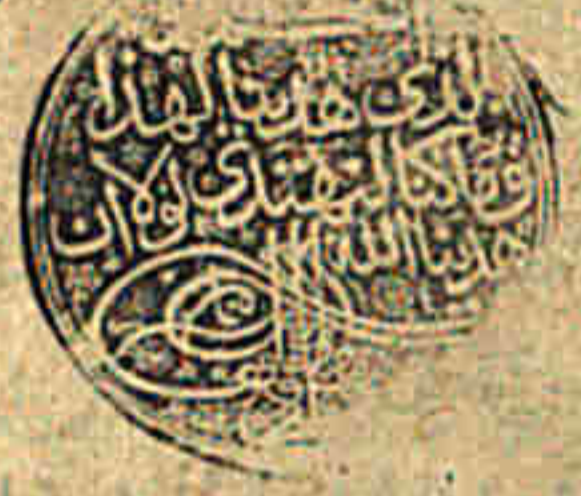 الذى هدينا لهذا
وما كنا لنهتدى لولا ان
هدينا الله